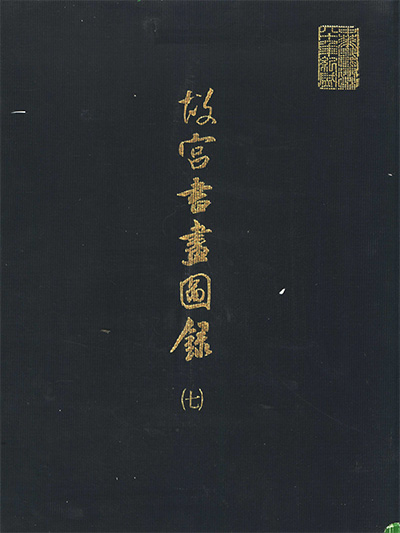 故宮書畫圖錄
㈦